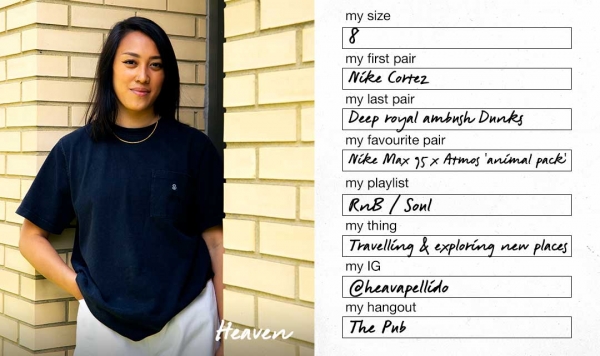 my size
8
my first pair
Nike Cortez
my last pair
Deep royal ambush Dunks
my favourite pair
Nike Max 95 x Atmos 'animal pack'
my playlist
RnB / Soul
my thing
Travelling & exploring new places
my IG
@heavapellido
my hangout
The Pub
Heaven